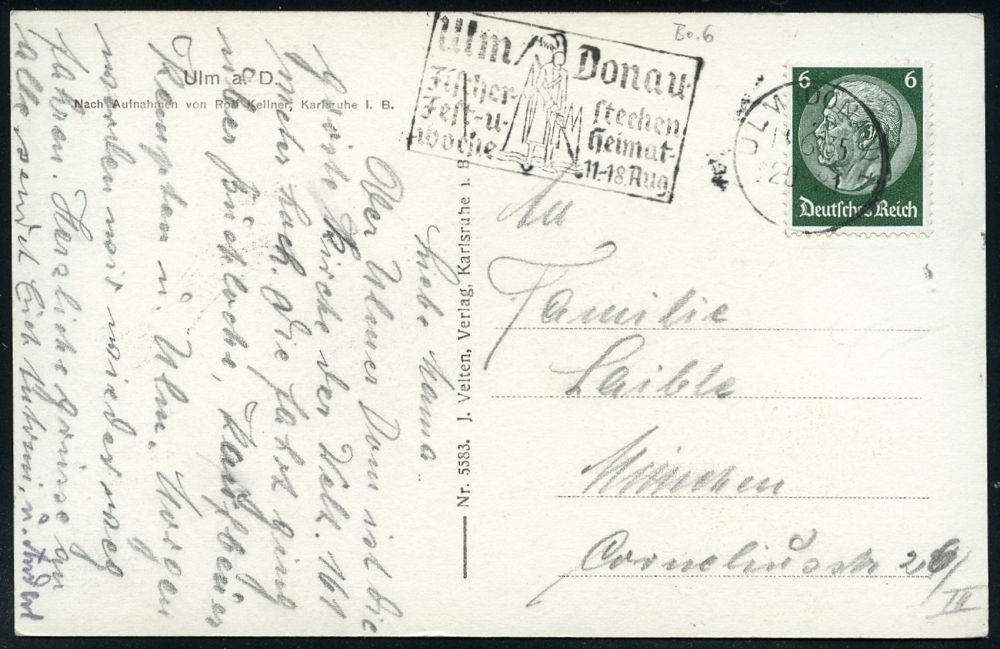 Bo.6
Ulm/Donau
Fischer-stechen
Fest-u-Heimat-
woche 11-18.Aug
6 6
ULM (DONAU)
Deutsches Reich
Ulm a. D.
Nach Aufnahmen von Rob Kellner, Karlsruhe i. B.
Nr. 5583. J. Velten, Verlag, Karlsruhe i. B.
Liebe Mama.
Der Ulmer Dom ist die
höchste Kirche der Welt. 161
meter hoch. Die Fahrt ging
über Buchloche, Kaufbeuer
Kempten n. Ulm. Morgen
werden wir wieder weg
fahren. Herzliche Grüsse an
alle sendet Euch
An
Familie
Laible
München
Corneliusstr 26/
III